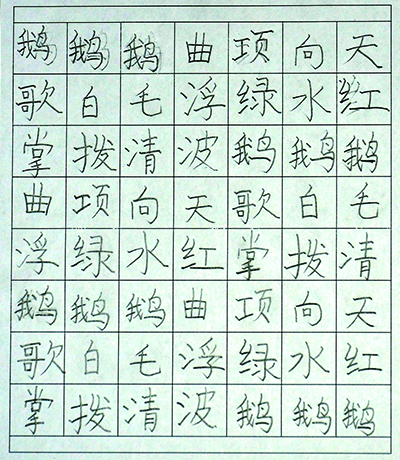 鹅鹅鹅曲项向天
歌白毛浮绿水红
掌拨清波鹅鹅鹅
曲项向天歌白毛
浮绿水红掌拨清
鹅鹅鹅曲项向天
歌白毛浮绿水红
掌拨清波鹅鹅鹅